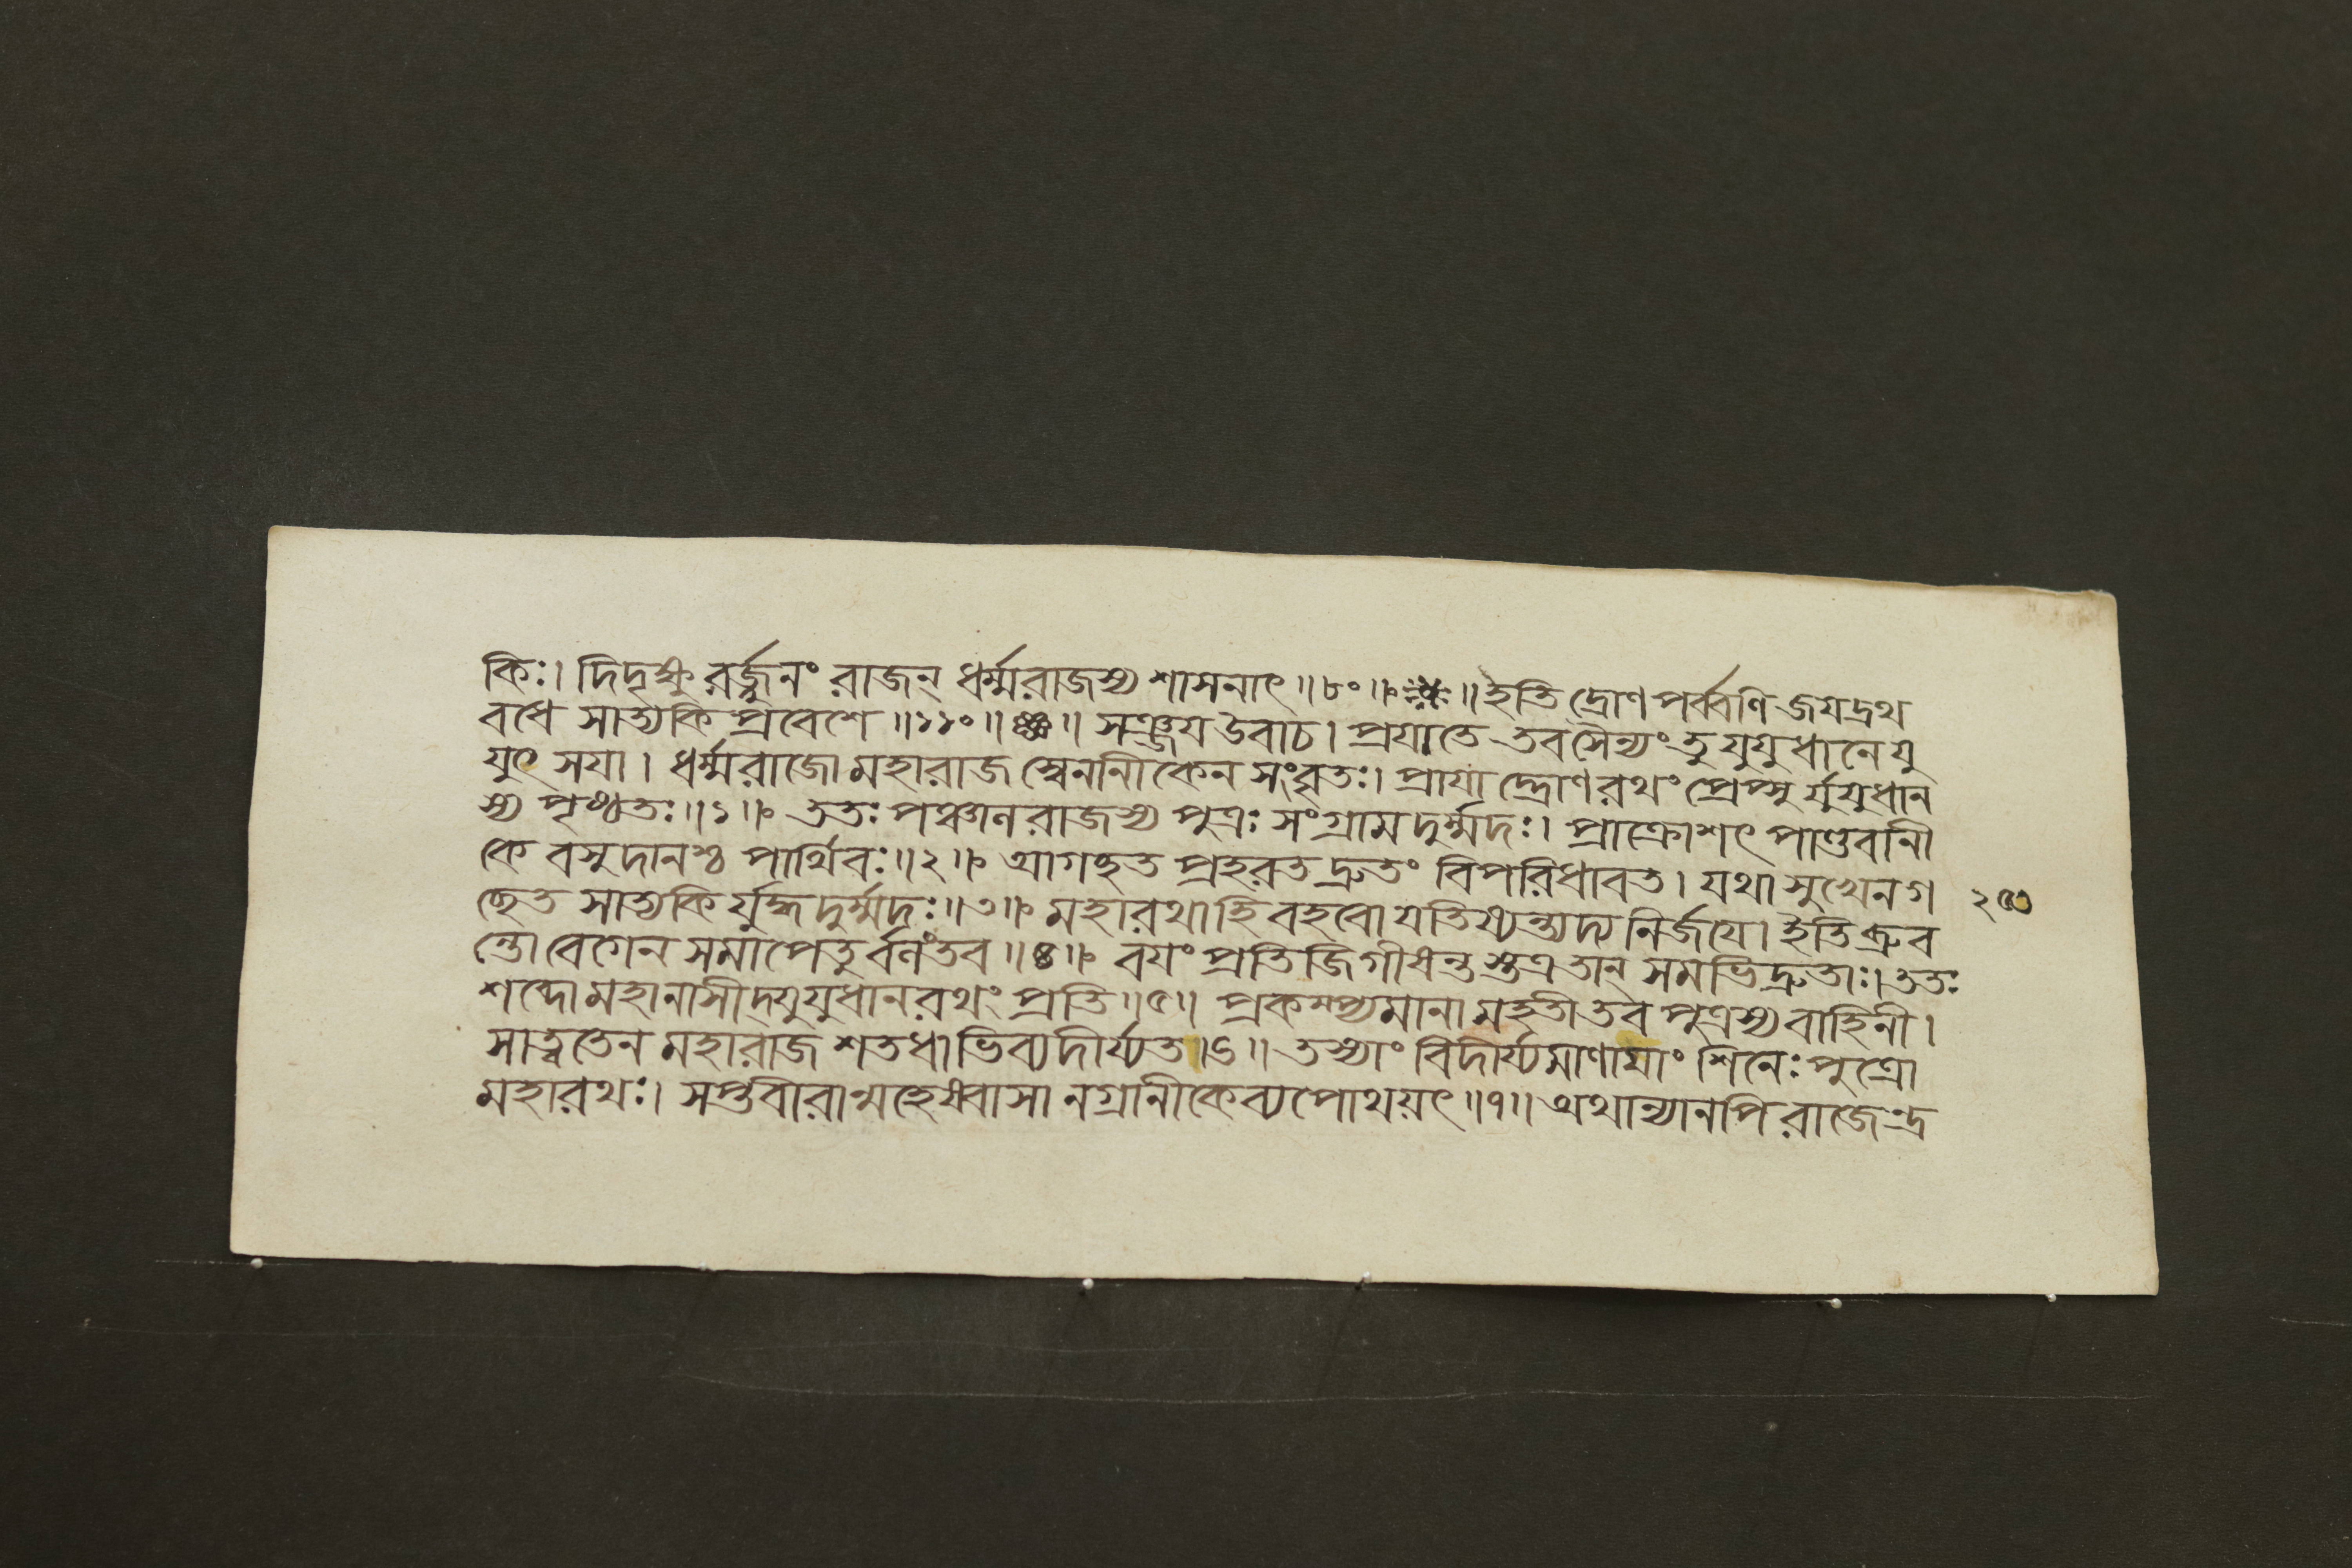 কিঃ। দিদৃক্ষুরর্জ্জুনং রাজন্ ধর্ম্মরাজস্য শাসনাৎ॥৮০॥ ॥ইতি দ্রোণপর্ব্বণি জয়দ্রথ
বধে সাত্যকিপ্রবেশে॥১১০॥ ॥ সঞ্জয় উবাচ। প্রয়াতে তব সৈন্যং তু যুযুধানে যু
যুৎসয়া। ধর্ম্মরাজো মহারাজ স্বেননীকেন সংবৃতঃ। প্রায়াদ্দ্রোণরথং প্রেপ্সুর্যুযুধান
স্য পৃষ্ঠতঃ॥১॥ ততঃ পঞ্চালরাজস্য পুত্রঃ সংগ্রামদুর্ম্মদঃ। প্রাক্রোশৎ পাণ্ডবানী
কে বসুদানশ্চ পার্থিবঃ॥২॥ আগচ্ছত প্রহরত দ্রুতং বিপরিধাবত। যথা সুখেন গ
চ্ছেত সাত্যকির্যুদ্ধদুর্ম্মদঃ॥৩॥ মহারথা হি বহবো যতিষ্যন্ত্যস্য নির্জয়ে। ইতি ব্রুব
ন্তো বেগেন সমাপেতুর্বলং তব॥৪॥ বয়ং প্রতিজিগীষন্তস্তত্র তান্ সমভিদ্রুতাঃ। ততঃ
শব্দো মহানাসীদ্যুযুধানরথং প্রতি॥৫॥ প্রকম্প্যমানা মহতী তব পুত্রস্য বাহিনী।
সাত্বতেন মহারাজ শতধাভিব্যদীর্য্যত॥৬॥ তস্যাং বিদীর্য্যমাণায়াং শিনেঃ পুত্রো
মহারথঃ। সপ্ত বীরান্মহেষ্বাসানগ্রানীকে ব্যপোথয়ৎ॥৭॥ অথান্যানপি রাজেন্দ্র